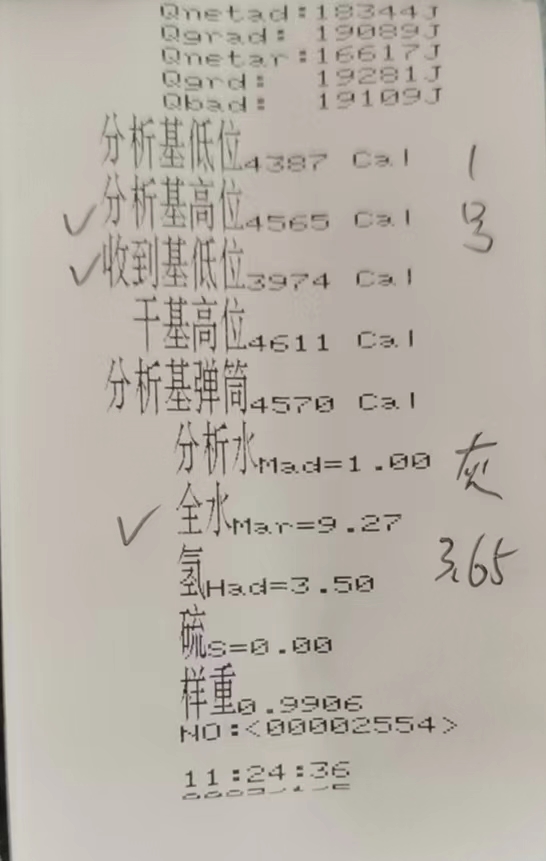 Qnetad:18344J
Qgrad: 19089J
Qnetar:16617J
Qgrd: 19281J
Qbad: 19109J
分析基低位4387 Cal
分析基高位4565 Cal
收到基低位3974 Cal
干基高位4611 Cal
分析基弹筒4570 Cal
分析水Mad=1.00
全水Mar=9.27
氢Had=3.50
硫S=0.00
样重0.9906
NO:<00002554>
11:24:36
1号
灰
3.65